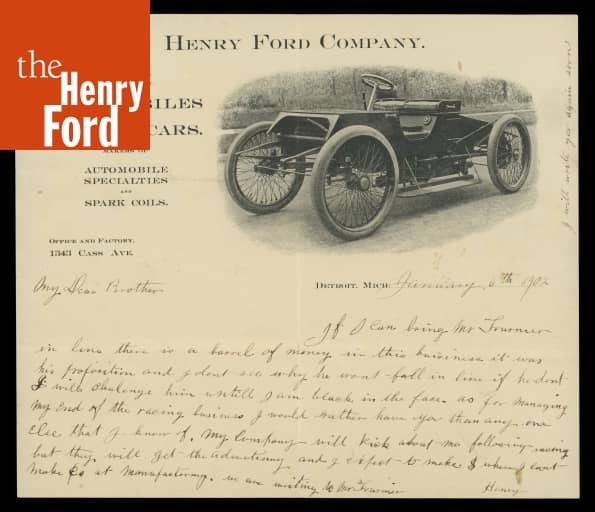 the
Henry
Ford
HENRY FORD COMPANY.
ILES
CARS.
MAKERS OF
AUTOMOBILE
SPECIALTIES
AND
SPARK COILS.
OFFICE AND FACTORY,
1343 CASS AVE.
DETROIT, MICH. January 6th 1902
My Dear Brother
If I can bring Mr Fournier
in line there is a barrel of money in this business it was
his proposition and I dont see why he wont fall in line if he dont
I will challenge him untill I am black in the face. as for managing
my end of the racing business I would rather have you than any one
else that I know of. My Company will kick about me following racing
but they will get the Advertising and I expect to make $ where I cant
make ¢ at manufacturing. we are writing to Mr Fournier
Henry
I will write you again soon